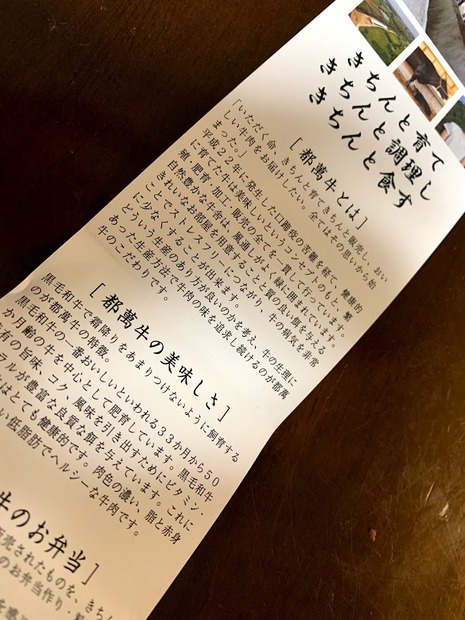 きちんと育て
きちんと調理し
きちんと食す
[ 都萬牛とは ]
「いただく命、きちんと育てきちんと販売し、おい
しい牛肉をお届けしたい。全つはその思いから始
まった。」
平成22年に発生した口蹄疫の苦難を経て、健康的
に育てた牛は美味しいというコンセプトのもと、繁
殖・肥育・加工・販売の全てを一貫して行っています。
自然豊かな牛舎は、風通しがよく緑に囲まれています。
きれいなお部屋を用意することと質の良い餌を与える
ことでストレスフリーにつながり、牛の病気を非常
に少なくすることが出来ます。
どういう生産のあり方が良いのかを考え、牛の生理に
あった生産方法で牛肉の味を追求し続けるのが都萬
牛のこだわりです。
[ 都萬牛の美味しさ ]
黒毛和牛で霜降りをあまりつけないように飼育する
のが都萬牛の特徴。
黒毛和牛の一番おいしいといわれる33か月から50
か月齢の牛を中心として肥育しています。黒毛和牛
有の旨味、コク、風味を引き出すためにビタミン・
ラルが豊富な良質な餌を与えています。これに
はとても健康的です。肉色の濃い、脂と赤身
い低脂肪でヘルシーな牛肉です。
牛のお弁当 ]
販売されたものを、きちん
のお弁当作り・